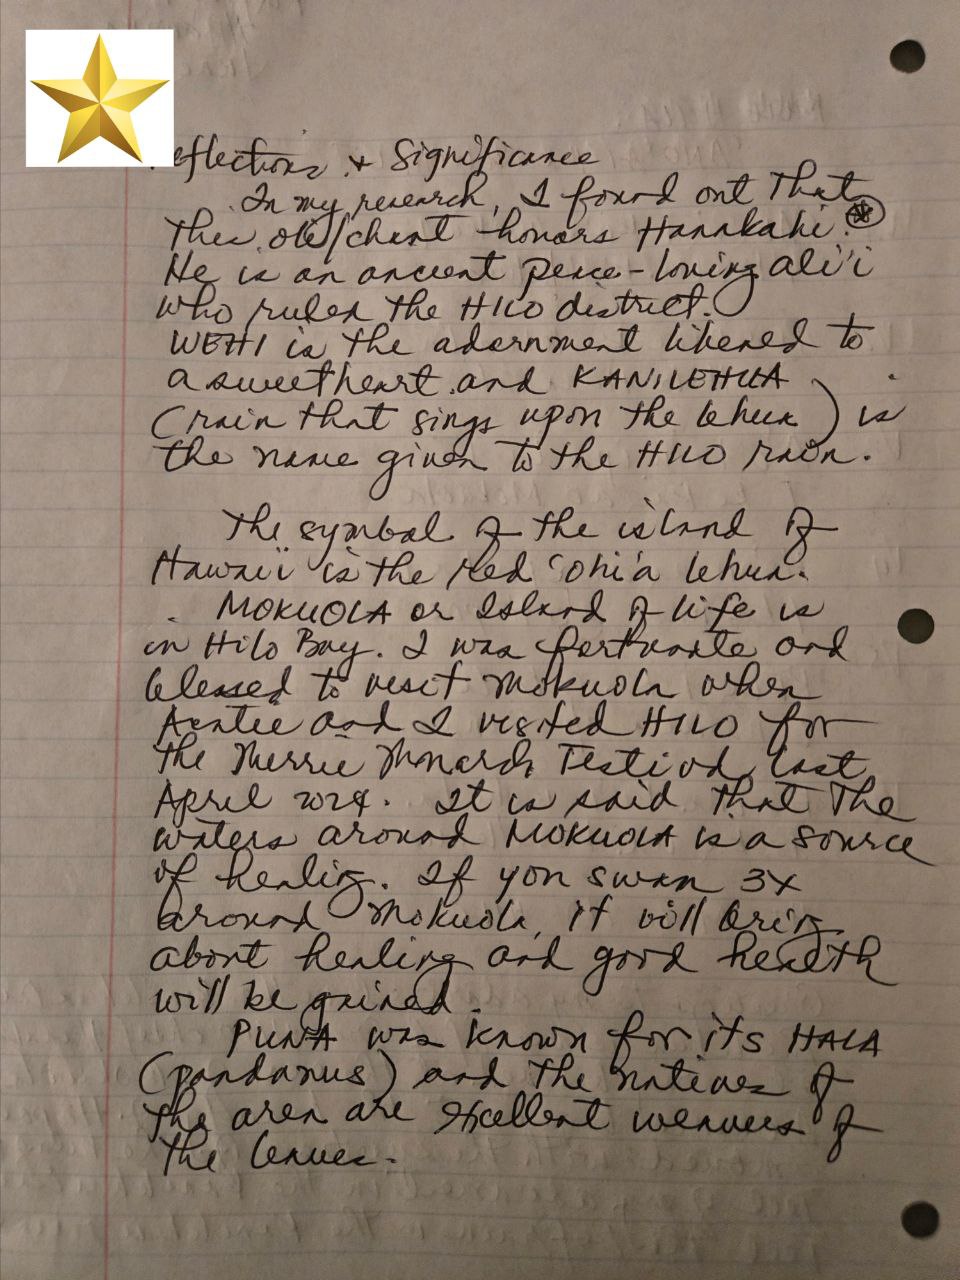 eflections & Significance
In my research, I found out That
This oli/chant honors Hanakahi.
He is an ancient peace-loving ali'i
who ruled the HILO district.
WEHI is the adornment likened to
a sweetheart and KANILEHUA
(rain that sings upon the lehua) is
the name given to the HILO rain.
The symbol of the island of
Hawai'i is the red 'ohi'a lehua.
MOKUOLA or Island of life is
in Hilo Bay. I was fortunate and
blessed to visit Mokuola when
Auntie and I visited HILO for
the Merrie Monarch Festival last
April 2024. It is said that The
waters around MOKUOLA is a source
of healing. If you swam 3x
around Mokuola, it will bring
about healing and good health
will be gained.
PUNA was known for its HALA
(pandanus) and the natives of
the area are excellent weavers of
the leaves.